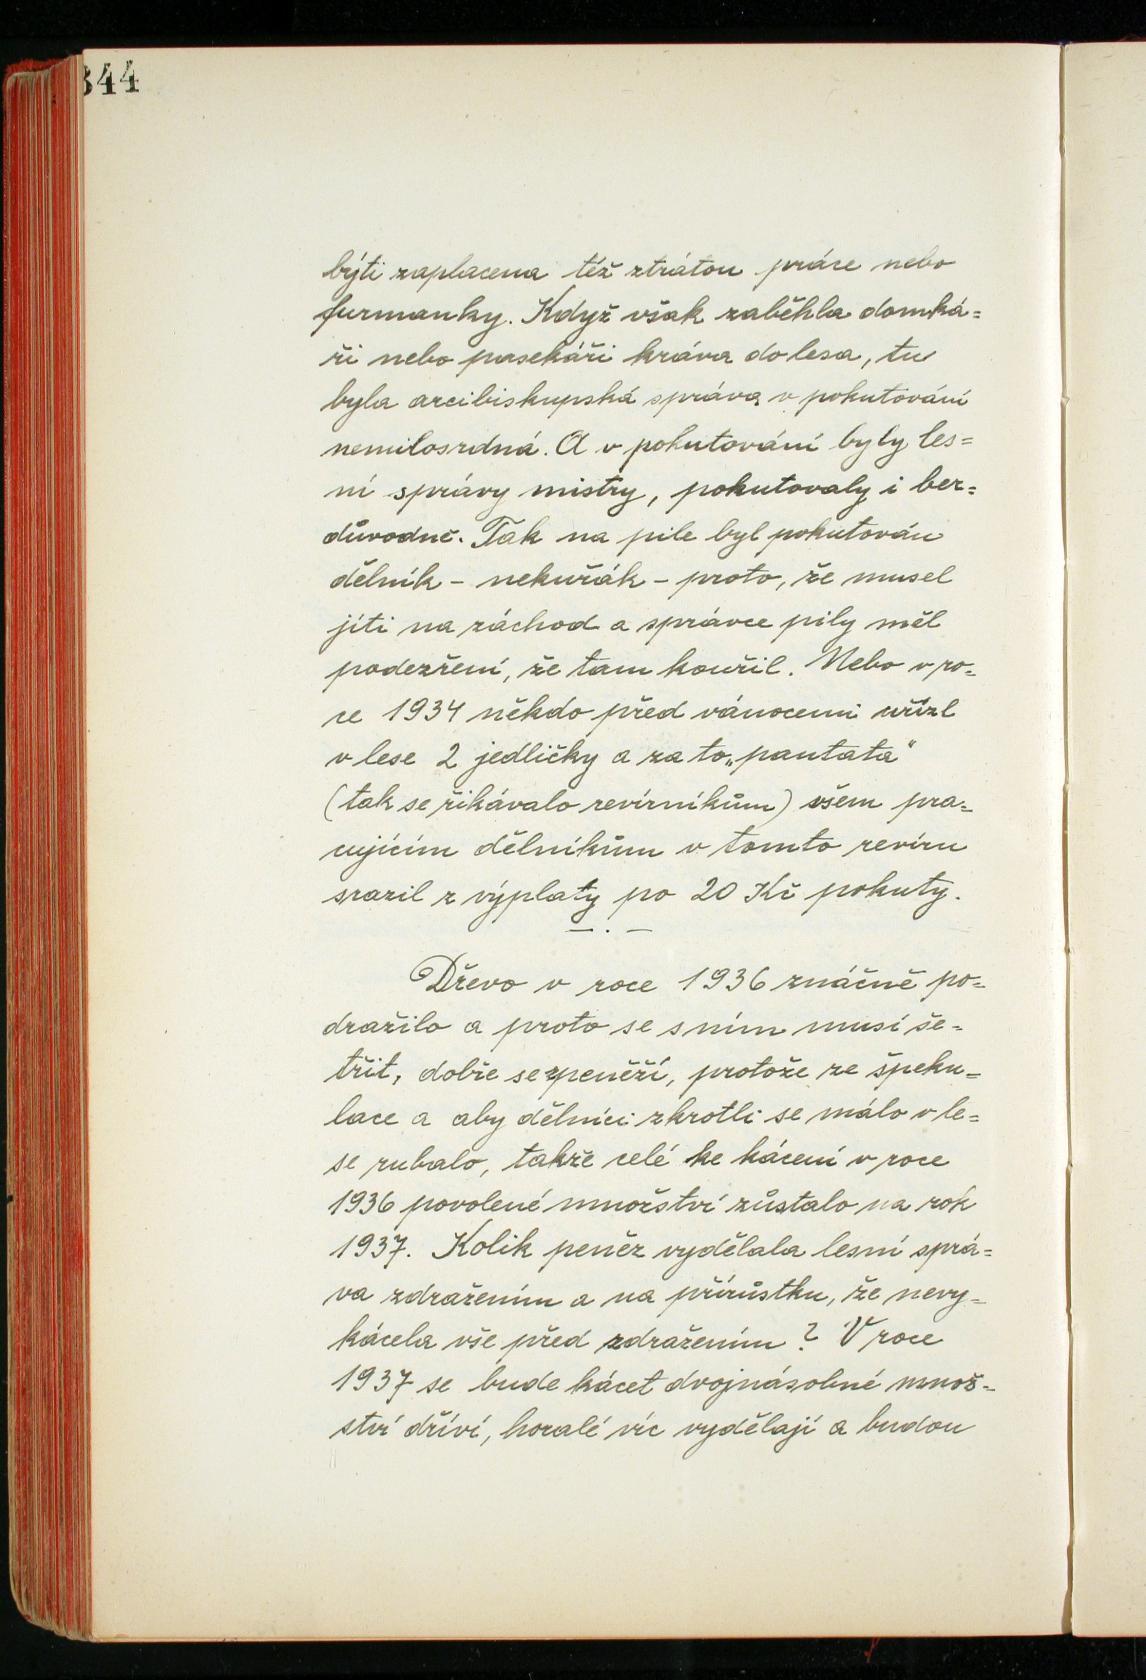 344
býti zaplacena též ztrátou práce nebo
furmanky. Když však zaběhla domká=
ři nebo pasekáři kráva do lesa, tu
byla arcibiskupská správa v pokutování
nemilosrdná. A v pokutování byly les=
ní správy mistry, pokutovaly i bez=
důvodně. Tak na pile byl pokutován
dělník - nekuřák - proto, že musel
jíti na záchod a správce pily měl
podezření, že tam kouřil. Nebo v ro=
ce 1934 někdo před vánocemi uřízl
v lese 2 jedličky a za to „pantata“
(tak se řikávalo revírníkům) všem pra=
cujícím dělníkům v tomto revíru
srazil z výplaty po 20 Kč pokuty.
— . —
Dřevo v roce 1936 značně po=
dražilo a proto se s ním musí še=
třit, dobře se zpeněží, protože ze špeku=
lace a aby dělníci zkrotli se málo v le=
se rubalo, takže celé ke kácení v roce
1936 povolené množství zůstalo na rok
1937. Kolik peněz vydělala lesní sprá=
va zdražením a na přírůstku, že nevy=
kácela vše před zdražením? V roce
1937 se bude kácet dvojnásobné množ=
ství dříví, horalé víc vydělají a budou